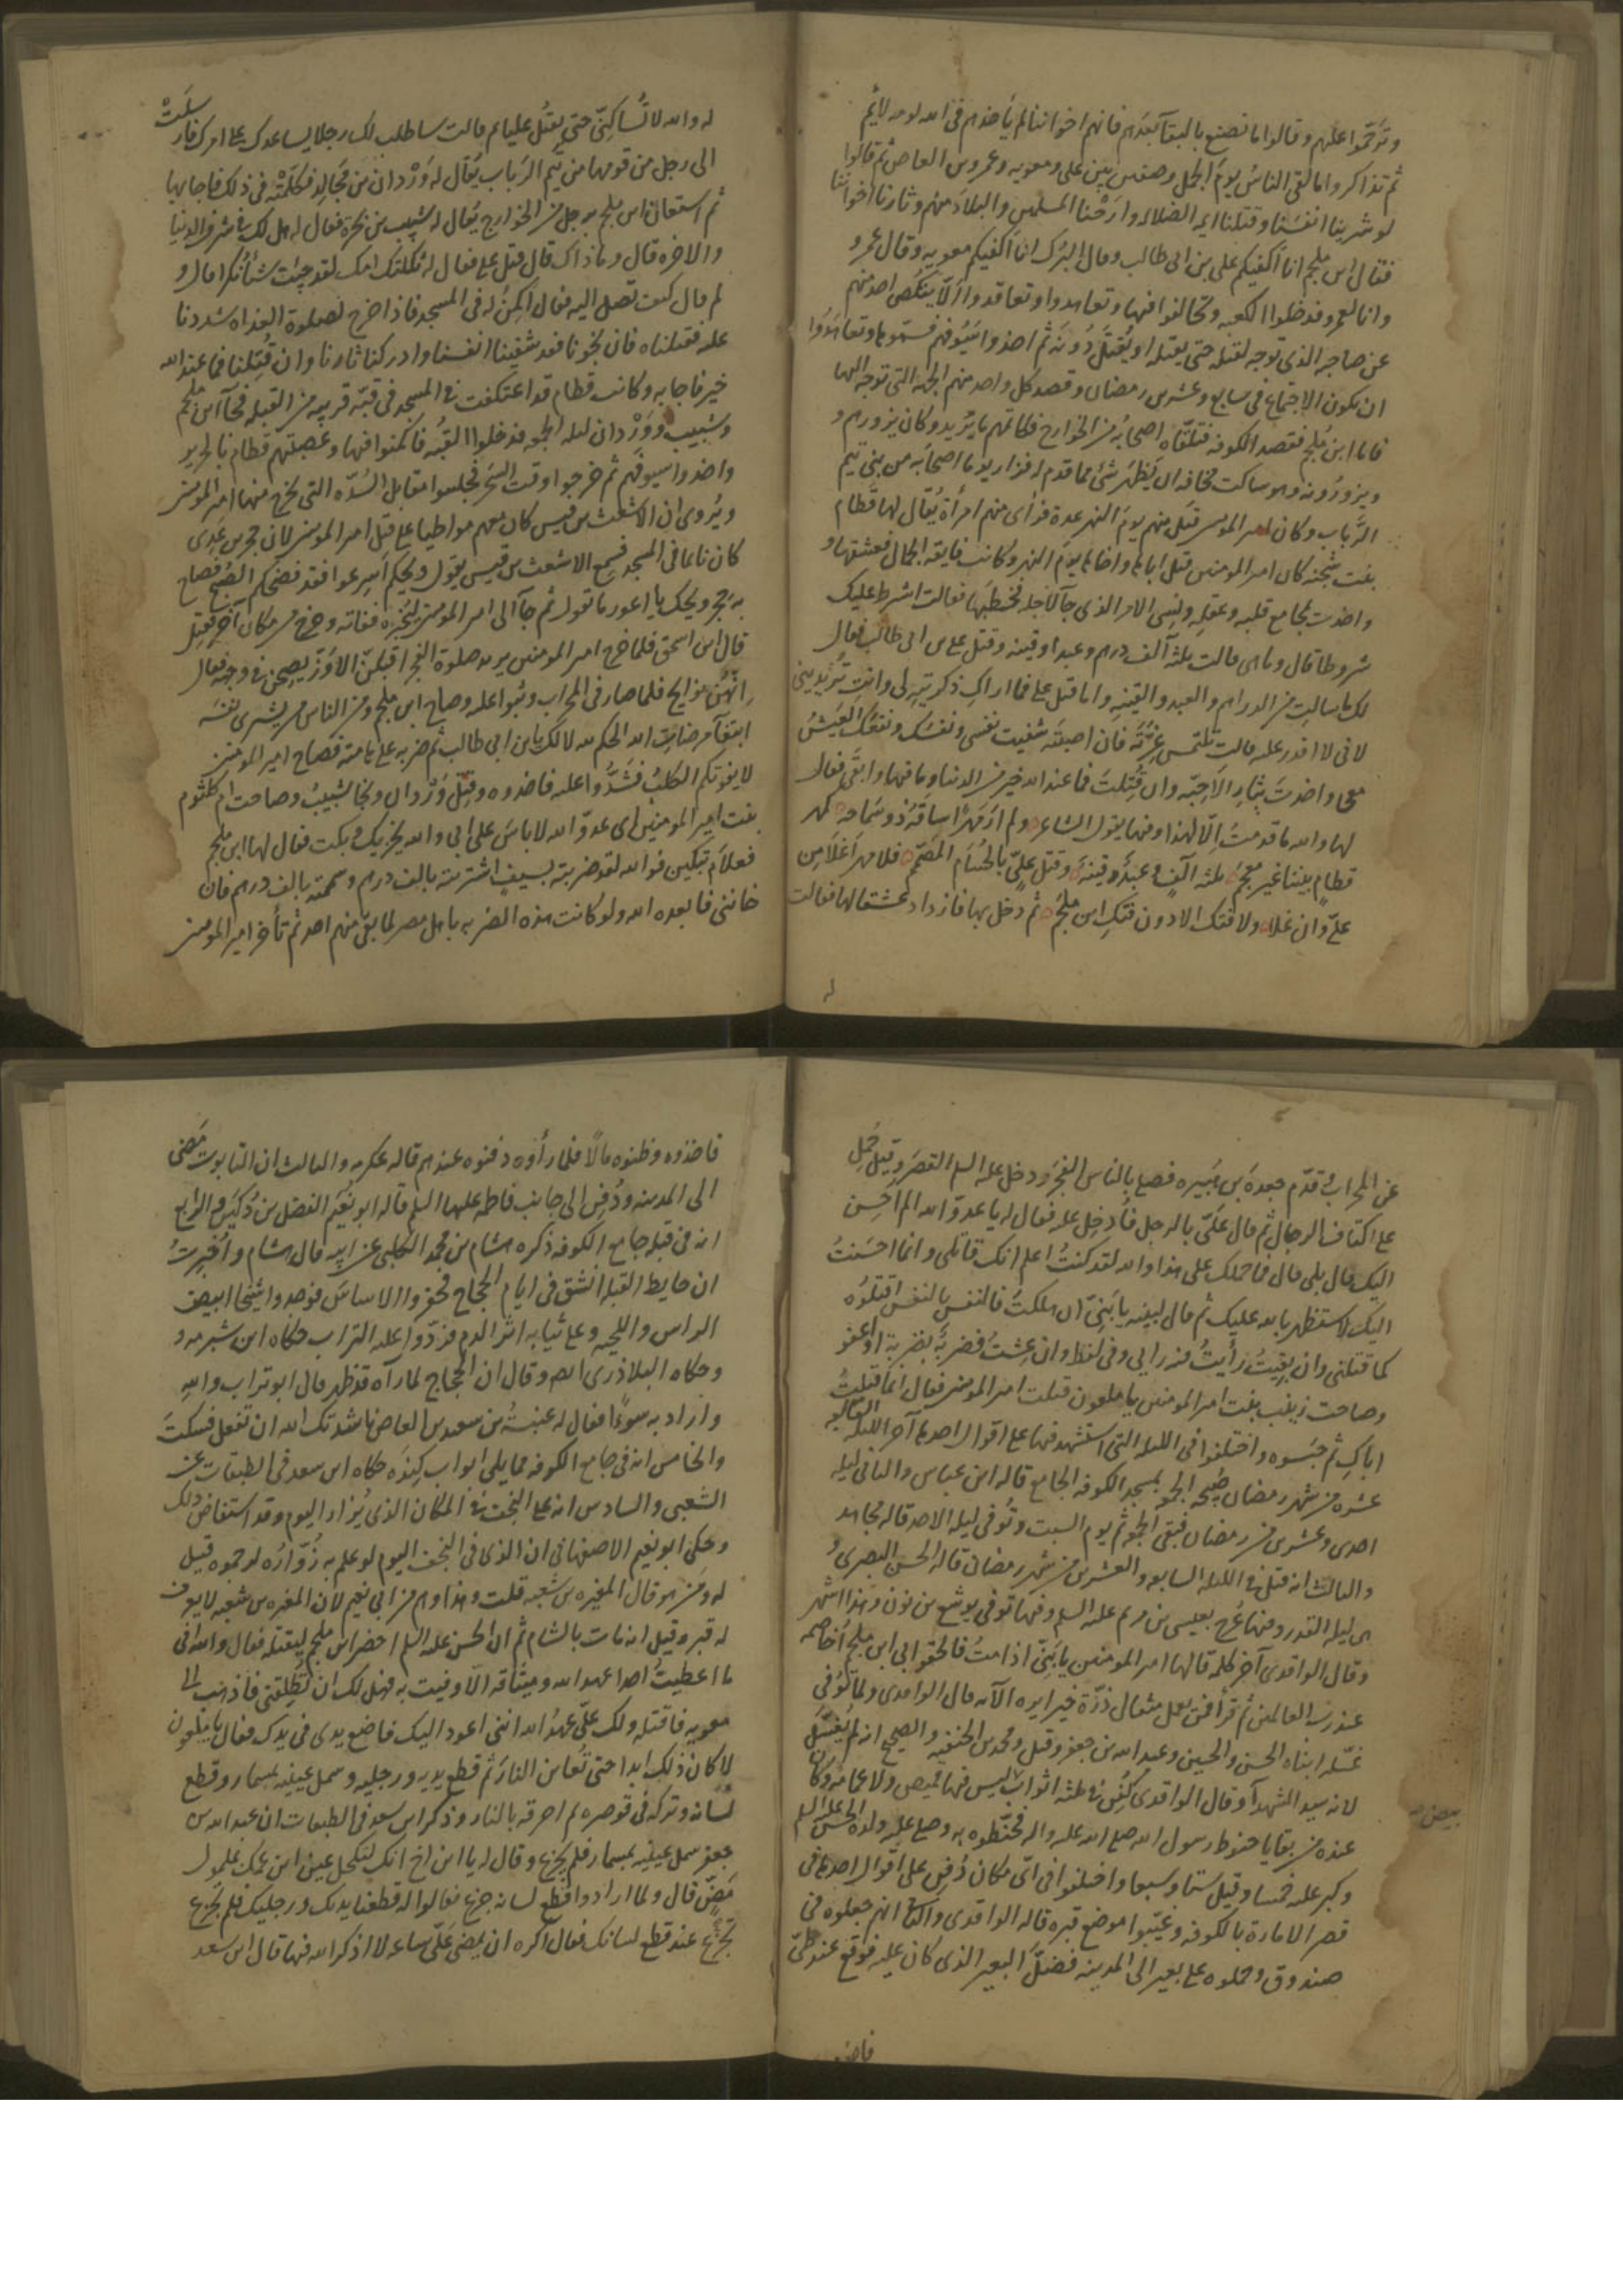 وترحموا عليهم وقالوا ما نصنع بالبقآ بعدهم فانهم اخواننا لم يأخذهم فى الله لومه لايم
ثم تذاكروا ما لقى الناس يوم الجمل وصفين بين على ومعويه وعمرو بن العاص ثم قالوا
لو شرينا انفسنا وقتلنا ايمه الضلاله وارحنا المسلمين والبلاد منهم وثارنا اخواننا
فقال ابن ملجم انا اكفيكم على بن ابى طالب وقال البرك انا اكفيكم معويه وقال عمرو
وانا لعمرو فدخلوا الكعبه وتحالفوا فيها وتعاهدوا وتعاقدوا ألا ينكص احد منهم
عن صاحبه الذى توجه لقتله حتى يقتله او يقتل دونه ثم اخذوا اسيوفهم فسموها وتعاهدوا
ان يكون الاجتماع فى سابع وعشرين رمضان وقصد كل واحد منهم الجهة التى توجه اليها
فاما ابن ملجم فقصد الكوفه فتلقاه اصحابه من الخوارج فكاتمهم ما يريد وكان يزورهم و
ويزورونه وهو ساكت مخافه ان يظهر شئ مما قدم له فزار يوما اصحابه من بنى تيم
الرباب وكان امير المومنين قتل منهم يوم النهر عدة فرأى منهم امرأة يقال لها قطام
بنت شجنه كان امير المومنين قتل اباها واخاها يوم النهر وكانت فايقه الجمال فعشقها و
واخذت بمجامع قلبه وعقله ونسى الامر الذى جآ لاجله فخطبها فقالت اشترط عليك
شروطا قال وما هى قالت ثلثه آلف درهم وعبدا وقينه وقتل على بن ابى طالب فقال
لك ما سالت من الدراهم والعبد والقينه واما قتل على فما اراك ذكرتيه لى وانت تريدينى
لانى لا اقدر عليه قالت تلتمس غرته فان اصبته شفيت نفسى ونفسك ونفعك العيش
معى واخذت بثار الاحبه وان قتلت فما عند الله خير من الدنيا وما فيها وابقى فقال
لها والله ما قدمت الا لهذا وفيها يقول الشاعر ولم ار مهرا ساقه ذو سماحه كمهر
قطام بينا غير معجم ثلثه آلف وعبد وقينة وقتل على بالحسام المصمم فلا مهر اغلا من
على وان غلا ولا فتك الا دون فتك ابن ملجم ثم دخل بها فازداد عشقا لها فقالت
له
له والله لا تساكنى حتى يقتل عليا ثم قالت ساطلب لك رجلا يساعدك على امرك فارسلت
الى رجل من قومها من تيم الرباب يقال له وردان بن مجالد فكلمته فى ذلك فاجابها
ثم استعان ابن ملجم برجل من الخوارج يقال له شبيب بن بجرة فقال له هل لك فى شرف الدنيا
والاخره قال وما ذاك قال قتل على فقال له ثكلتك امك لقد جئت شأ نكرا قال و
لم قال كيف تصل اليه فقال اكمن له فى المسجد فاذا خرج لصلوة الغداه شددنا
عليه فقتلناه فان نجونا فقد شفينا انفسنا وادركنا ثارنا وان قتلنا فما عند الله
خير فاجابه وكانت قطام قد اعتكفت فى المسجد فى قبه قريبه من القبله فجآ ابن ملجم
وشبيب ووردان ليله الجمعه فدخلوا القبه فاكمنوا فيها وعصبتهم قطام بالحرير
واخذوا سيوفهم ثم خرجوا وقت السحر فجلسوا مقابل السده التى يخرج منها امير المومنين
ويروى ان الاشعث بن قيس كان معهم مواطيا على قتل امير المومنين لان حجر بن عدى
كان نائما فى المسجد فسمع الاشعث بن قيس يقول ويحكم اسرعوا فقد فضحكم الصبح فصاح
به حجر ويحك يا اعور ما تقول ثم جآ الى امير المومنين ليخبره ففاته وخرج من مكان آخر فقتل
قال ابن اسحق فلما خرج امير المومنين يريد صلوة الفجر اقبلن الاوز يصحن فى وجهه فقال
انهن نوايح فلما صار فى المحراب وثبوا عليه وصاح ابن ملجم ومن الناس من يشرى نفسه
ابتغآ مرضات الله الحكم لله لا لك يا بن ابى طالب ثم ضربه على هامته فصاح امير المومنين
لا يفوتكم الكلب فشدوا عليه فاخذوه وقتل وردان ونجا شبيب وصاحت ام كلثوم
بنت امير المومنين اى عدو الله لا باس على ابى والله يخزيك وبكت فقال لها ابن ملجم
فعلام تبكين فوالله لقد ضربته بسيف اشتريته بالف درهم وسممته بالف درهم فان
خاننى فابعده الله ولو كانت هذه الضربه باهل مصر لما بقى منهم احد ثم تأخر امير المومنين
عن المحراب وقدم جعدة بن هبيره فصلى بالناس الفجر ودخل عليه السلم القصر وقيل حمل
على اكتاف الرجال ثم قال على بالرجل فأدخل عليه فقال له يا عدو الله الم احسن
اليك قال بلى قال فما حملك على هذا والله لقد كنت اعلم انك قاتلى وانما احسنت
اليك لاستظهر بالله عليك ثم قال لبنيه يا بنى ان هلكت فالنفس بالنفس اقتلوه
كما قتلنى وان بقيت رأيت فيه رايى وفى لفظ وان عشت فضربة بضربة او اعفو
وصاحت زينب بنت امير المومنين يا ملعون قتلت امير المومنين فقال انما قتلت
اباك ثم حبسوه واختلفوا فى الليله التى استشهد فيها على اقوال احدها آخر الليله السابعه
عشره من شهر رمضان صبيحه الجمعه بمسجد الكوفه الجامع قاله ابن عباس والثانى ليله
احدى وعشرين من رمضان فبقى الجمعه ثم يوم السبت وتوفى ليله الاحد قاله مجاهد
والثالث انه قتل فى الليله السابعه والعشرين من شهر رمضان قاله الحسن البصرى و
هى ليله القدر وفيها عرج بعيسى بن مريم عليه السلم وفيها توفى يوشع بن نون وهذا اشهر
وقال الواقدى آخر كلمه قالها امير المومنين يا بنى اذا مت فالحقوا بى ابن ملجم اخاصمه
عند رب العالمين ثم قرأ فمن يعمل مثقال ذرة خيرا يره الآيه قال الواقدى ولما توفى
غسله ابناه الحسن والحسين وعبد الله بن جعفر وقيل ومحمد بن الحنفيه والصحيح انه لم يغسل
لانه سيد الشهدآ وقال الواقدى كفن فى ثلثه اثواب ليس فيها قميص ولا عمامه وكان
عنده من بقايا حنوط رسول الله صلى الله عليه واله فحنطوه به وصلى عليه ولده الحسن عليه السلم
وكبر عليه خمسا وقيل ستا وسبعا واختلفوا فى اى مكان دفن على اقوال احدها فى
قصر الامارة بالكوفه وغيبوا موضع قبره قاله الواقدى والثانى انهم جعلوه فى
صندوق وحملوه على بعير الى المدينه فضل البعير الذى كان عليه فوقع عند طى
فاخذوه
فاخذوه وظنوه مالا فلما رأوه دفنوه عندهم قاله عكرمه والثالث ان التابوت مضى
الى المدينه ودفن الى جانب فاطمه عليها السلم قاله ابو نعيم الفضل بن دكين والرابع
انه فى قبله جامع الكوفه ذكره هشام بن محمد الكلبى عن ابيه قال هشام واخبرت
ان حايط القبله انشق فى ايام الحجاج فحفروا الاساس فوجدوا شيخا ابيض
الراس واللحيه وعلى ثيابه اثر الدم فردوا عليه التراب حكاه ابن شبرمه و
وحكاه البلاذرى ايضا وقال ان الحجاج لما رآه قد ظهر قال ابو تراب والله
واراد به سوءا فقال له عنبسة بن سعيد بن العاص ناشدتك الله ان تفعل فسكت
والخامس انه فى جامع الكوفه مما يلى ابواب كنده حكاه ابن سعد فى الطبقات عن
الشعبى والسادس انه على النجف فى المكان الذى يزار اليوم وقد استفاض ذلك
وحكى ابو نعيم الاصفهانى ان الذى فى النجف اليوم لو علم به زواره لرجموه قيل
له ومن هو قال المغيره بن شعبه قلت وهذا وهم من ابى نعيم لان المغيره بن شعبه لا يعرف
له قبر وقيل انه مات بالشام ثم ان الحسن عليه السلم احضر ابن ملجم ليقتله فقال والله انى
ما اعطيت احدا عهد الله وميثاقه الا وفيت به فهل لك ان تطلقنى فاذهب الى
معويه فاقتله ولك على عهد الله اننى اعود اليك فاضع يدى فى يدك فقال يا ملعون
لا كان ذلك ابدا حتى تعاين النار ثم قطع يديه ورجليه وسمل عينيه بمسمار وقطع
لسانه وتركه فى قوصره ثم احرقه بالنار وذكر ابن سعد فى الطبقات ان عبد الله بن
جعفر سمل عينيه بمسمار فلم يجزع وقال له يا ابن اخ انك لتكحل عين ابن عمك بملمول
مض قال ولما ارادوا قطع لسانه جزع فقالوا له قطعنا يديك ورجليك فلم تجزع
تجزع عند قطع لسانك فقال اكره ان يمضى على ساعه لا اذكر الله فيها قال ابن سعد